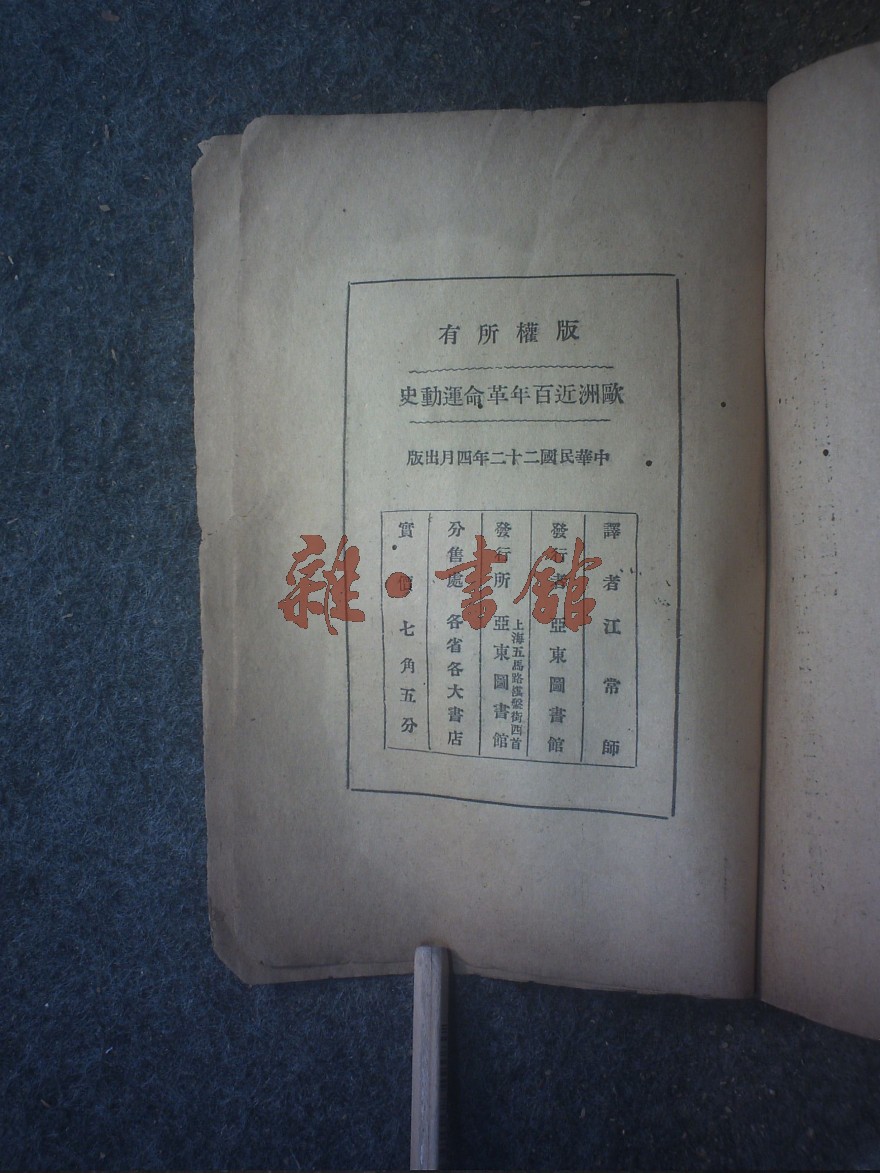 版權所有
歐洲近百年革命運動史
中華民國二十二年四月出版
譯者江常師
發行者亞東圖書館
發行所亞東圖書館
上海五馬路棋盤街西首
分售處各省各大書店
實價七角五分
雜·書館